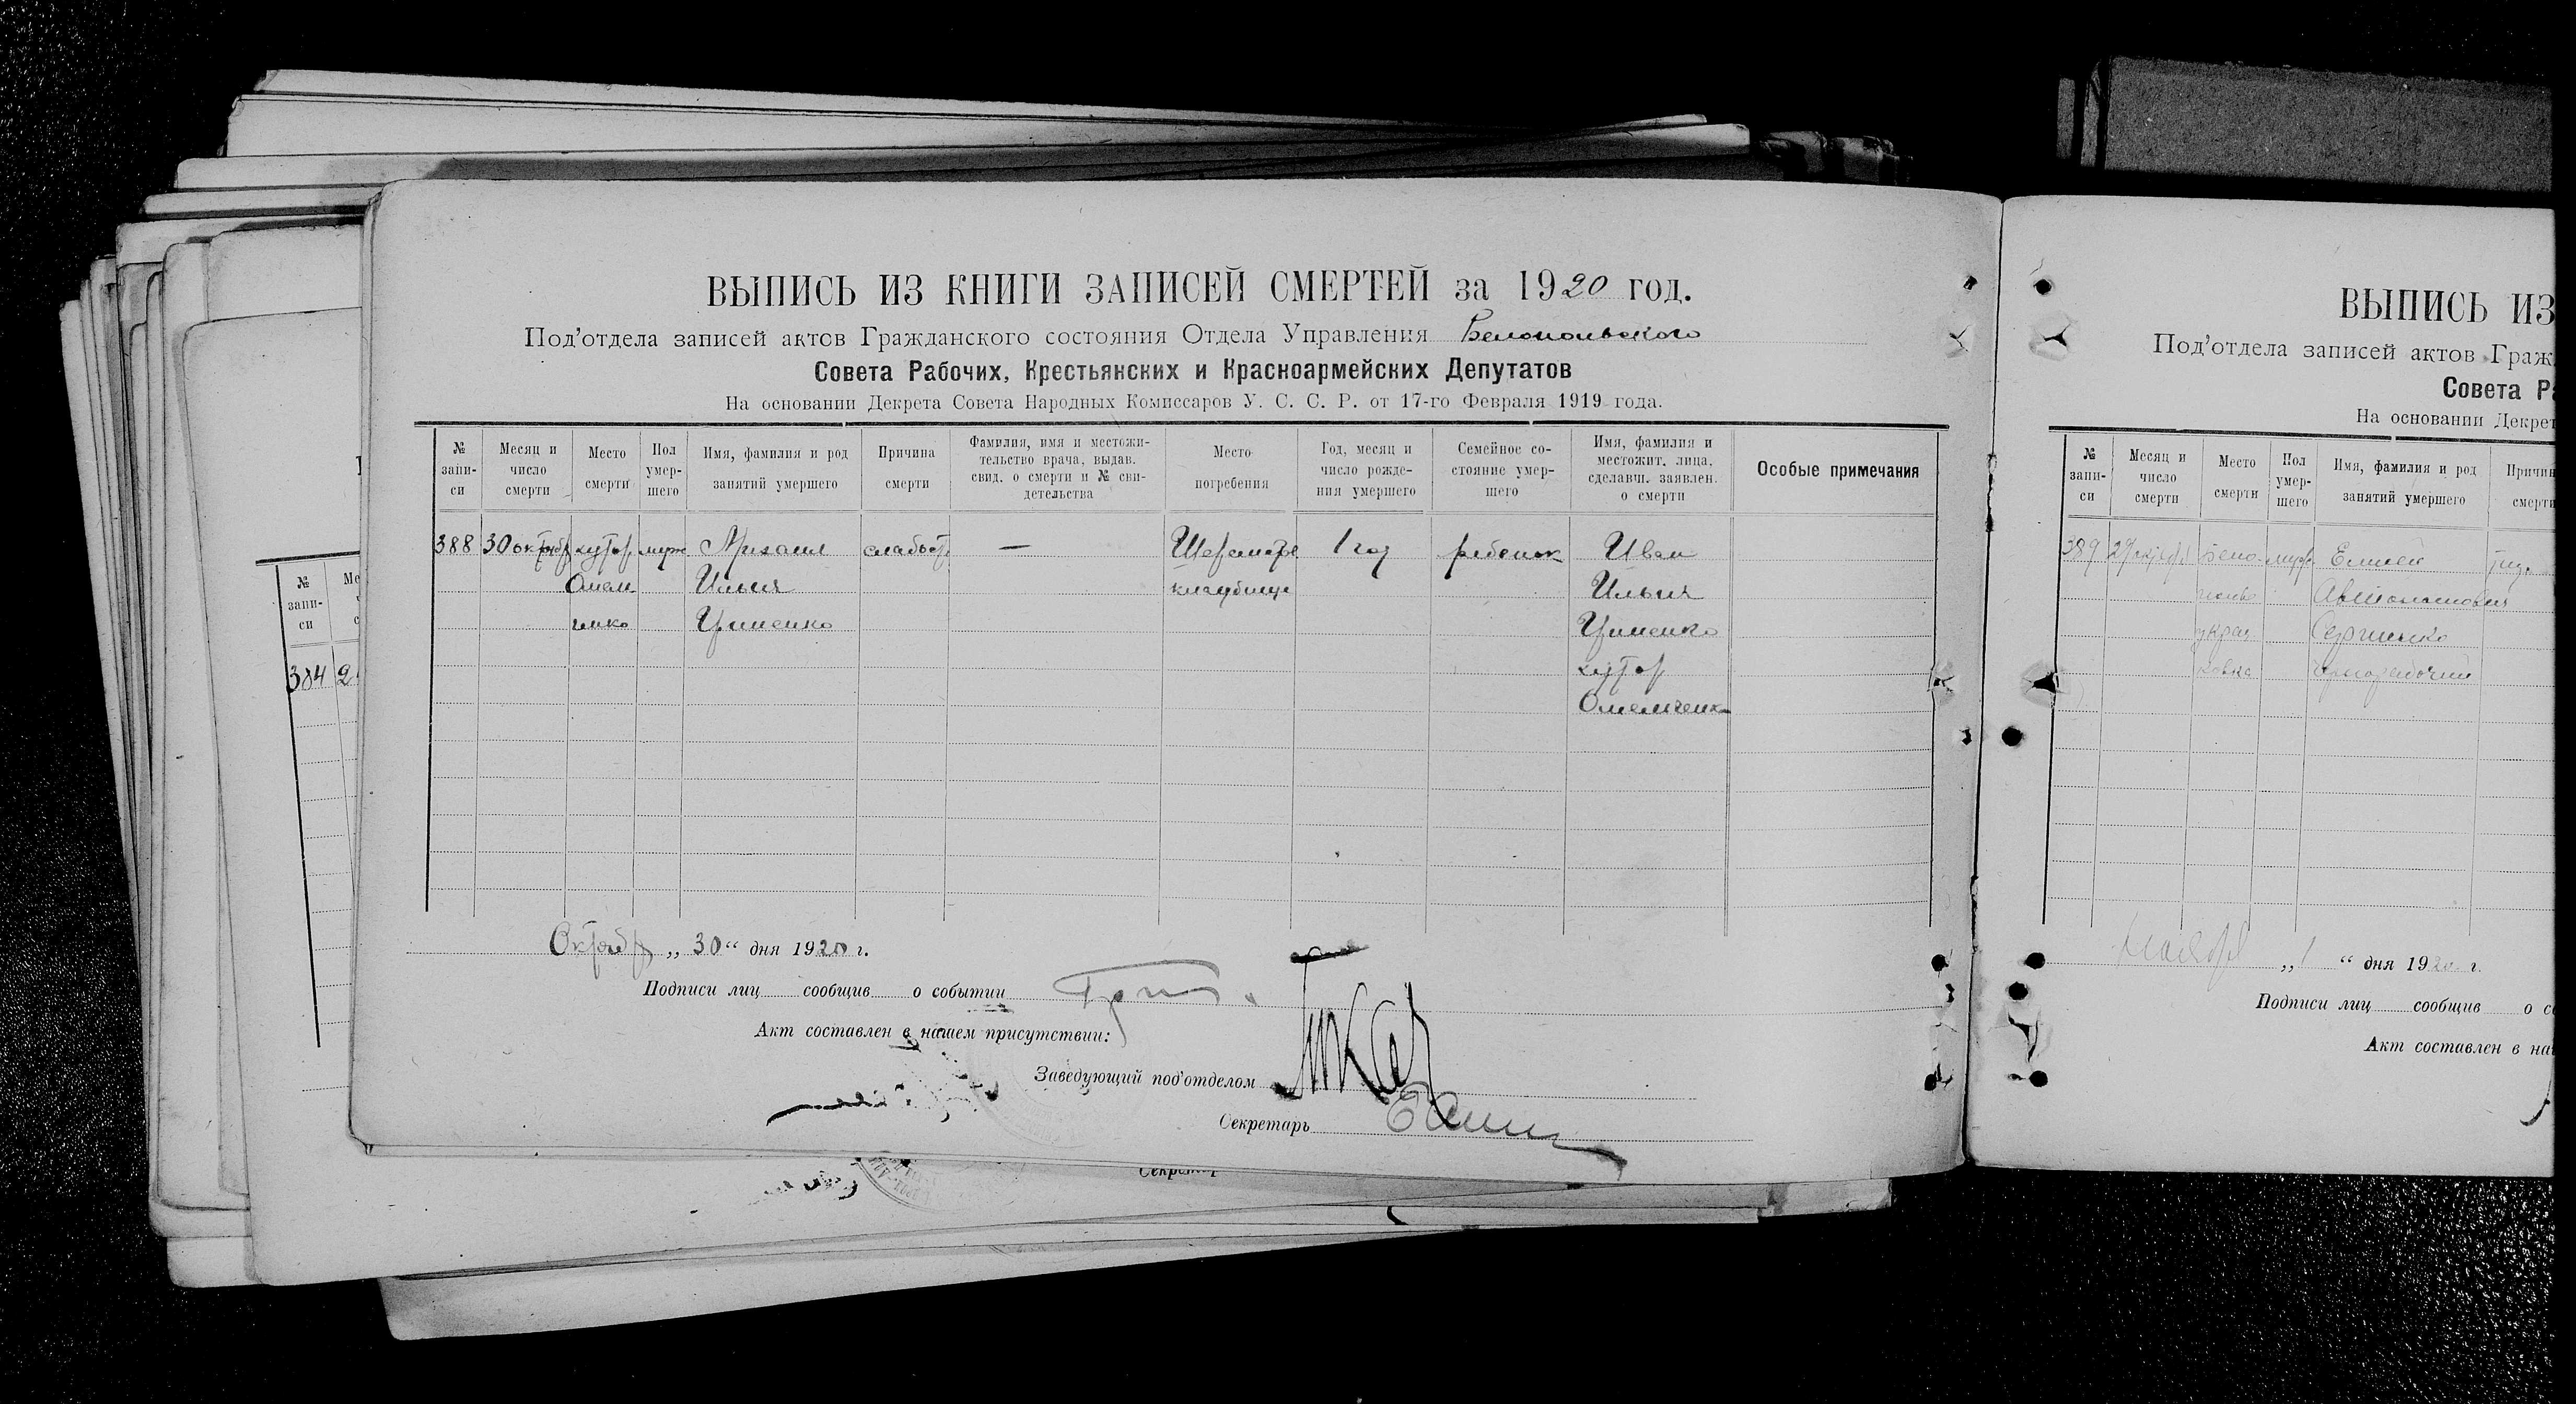 ВЫПИСЬ ИЗ КНИГИ ЗАПИСЕЙ СМЕРТЕЙ за 1920 год.
Под'отдела записей актов Гражданского состояния Отдела Управления Белопольского
Совета Рабочих, Крестьянских и Красноармейских Депутатов
На основании Декрета Совета Народных Комиссаров У. С. С. Р. от 17-го Февраля 1919 года.
№ запи-си
Месяц и число смерти
Место смерти
Пол умер-шего
Имя, фамилия и род занятий умершего
Причина смерти
Фамилия, имя и местожи-тельство врача, выдав. свид. о смерти и № сви-детельства
Место погребения
Год, месяц и число рожде-ния умершего
Семейное со-стояние умер-шего
Имя, фамилия и местожит. лица, сделавш. заявлен. о смерти
Особые примечания
388 30 октябр хутор муж Михаил слабост — 1 год ребенок Иван
Омель Ильич кладбище Ильич
ченко Циненко Циненко
хутор
Омельченк
Октябр „ 30 “ дня 1920 г.
Подписи лиц сообщив о событии
Акт составлен в нашем присутствии:
Заведующий под'отделом
Секретарь
№ запи-си
Ме
384 2
Секретар
ВЫПИСЬ ИЗ
Под'отдела записей актов Граж
Совета Р
На основании Декрет
№ запи-си
Месяц и число смерти
Место смерти
Пол умер-шего
Имя, фамилия и род занятий умершего
Причин смерти
389 Бело муж Елисей
Автономович
Сергиенко
чернорабочий
„ 1 “ дня 1920 г.
Подписи лиц сообщив о с
Акт составлен в на